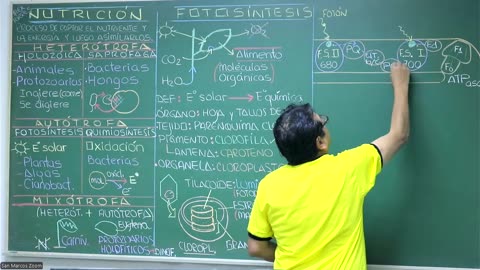 NUTRICIÓN
PROCESO DE CAPTAR EL NUTRIENTE Y
LA ENERGÍA Y LUEGO ASIMILARLOS
HETERÓTROFA
HOLOZOICA SAPRÓFAGA
-Animales
-Protozoarios
Ingiere (come)
Se digiere
-Bacterias
-Hongos
AUTÓTROFA
FOTOSÍNTESIS QUIMIOSÍNTESIS
E° solar
-Plantas
-Algas
-Cianobact.
Oxidación
Bacterias
E°
MIXÓTROFA
(HETERÓT. + AUTÓTROFA)
Carniv.
Euglena
PROTOZOARIOS
HOLOFÍTICOS
DINOF.
FOTOSÍNTESIS
CO₂
H₂O
Alimento
(moléculas
Orgánicas)
DEF: E° solar → E° química
ÓRGANO: HOJA y TALLOS DE
TEJIDO: PARÉNQUIMA CLOROF
PIGMENTO: CLOROFILA
L ANTENA: CAROTENO
ORGANELA: CLOROPLAST
TILACOIDE
CLOROPL.
GRANA
FOTÓN
F.S. II
680
PQ
F.S. I
700
Fd
ATPasa
San Marcos Zoom